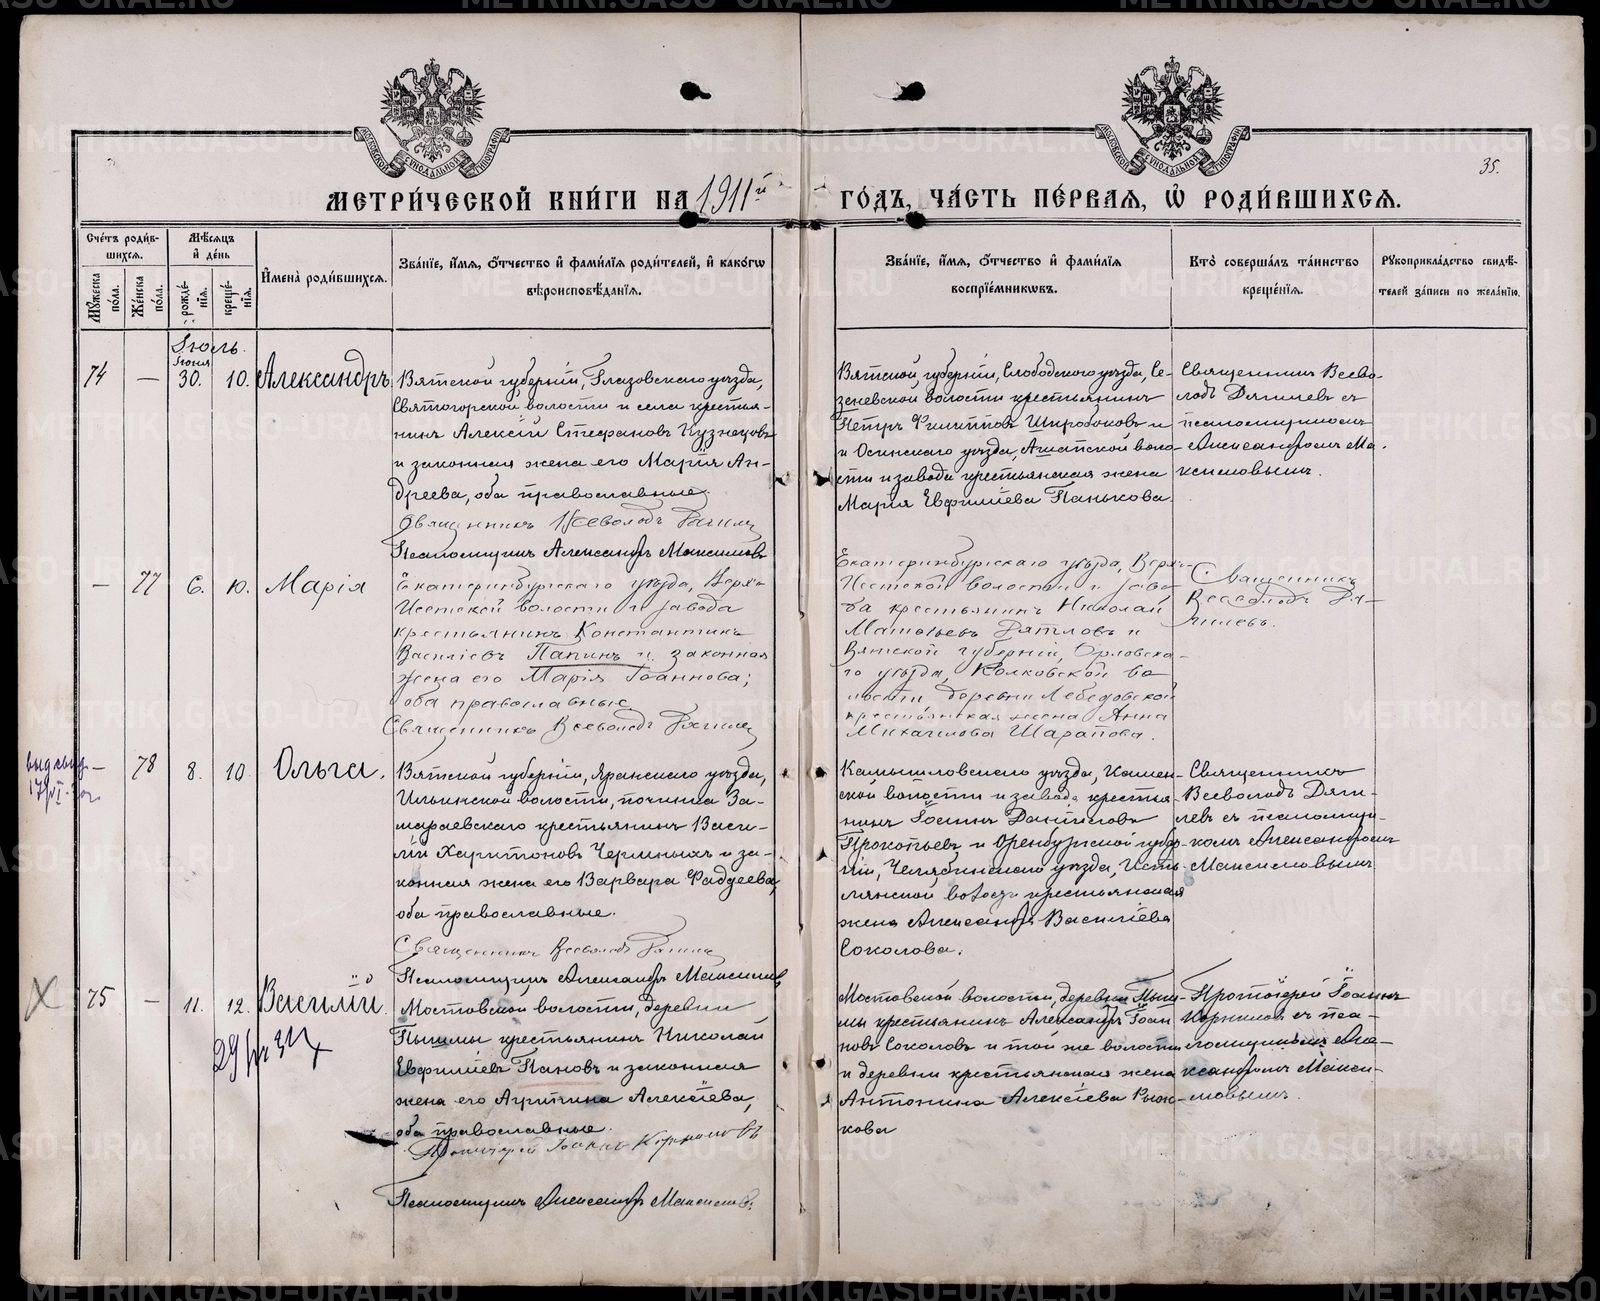 35.
МЕТРИ́ЧЕСКОЙ КНИ́ГИ НА 1911й ГО́ДЪ, ЧА́СТЬ ПЕ́РВАЯ, Ѽ РОДИ́ВШИХСЯ.
Сче́тъ роди́вшихся.
Мѣ́сяцъ и҆ де́нь
Мꙋ́жеска по́ла.
Же́нска по́ла.
рожде́нїѧ.
креще́нїѧ.
И҆мена̀ роди́вшихсѧ.
Зва́нїе, и҆́мѧ, ѻ҆́тчество и҆ фами́лїѧ роди́телей, и҆ како́гѡ
вѣроисповѣ́данїѧ.
Зва́нїе, и҆́мѧ, ѻ҆́тчество и҆ фами́лїѧ
воспрїе́мникѡвъ.
Кто̀ соверша́лъ та́инство
креще́нїѧ.
Рꙋкоприкла́дство свидѣ́-
телей за́писи по жела́нїю.
Іюль.
74 — Іюня 30. 10. Александръ
Вятской губерніи, Глазовскаго уѣзда,
Святогорской волости и села крестья-
нинъ Алексій Стефановъ Кузнецовъ
и законная жена его Марія Ан-
дреева, оба православные.
Священникъ Всеволодъ Дягилевъ
Псаломщикъ Александръ Максимовъ
Вятской губерніи, Слободскаго уѣзда, Се-
зеневской волости крестьянинъ
Петръ Филипповъ Широбоковъ и
и Осинскаго уѣзда, Ашапской воло-
сти и завода крестьянская жена
Марія Евфиміева Панькова.
Священникъ Всево-
лодъ Дягилевъ съ
псаломщикомъ
Александромъ Ма-
ксимовымъ.
— 77 6. 10. Марія
Екатеринбургскаго уѣзда, Верх-
Исетской волости и завода
крестьянинъ Константинъ
Василіевъ Папинъ и законная
жена его Марія Іоаннова;
оба православные.
Священникъ Всеволодъ Дягилевъ
Екатеринбургскаго уѣзда, Верх-
Исетской волости и заво-
да крестьянинъ Николай
Матѳіевъ Дятловъ и
Вятской губерніи, Орловска-
го уѣзда, Колковской во-
лости деревни Лебедовской
крестьянская жена Анна
Михаилова Шарапова.
Священникъ
Всеволодъ Дя-
гилевъ.
— 78 8. 10. Ольга.
Вятской губерніи, Яранскаго уѣзда,
Ильинской волости, починка За-
мараевскаго крестьянинъ Васи-
лій Харитоновъ Черныхъ и за-
конная жена его Варвара Фаддеева,
оба православные.
Священникъ Всеволодъ Дягилевъ
Псаломщикъ Александръ Максимовъ
Камышловскаго уѣзда, Камен-
ской волости и завода крестья-
нинъ Іоаннъ Даніиловъ
Прокопьевъ и Оренбургской губер-
ніи, Челябинскаго уѣзда,
волости крестьянская
жена Александра Василіева
Соколова.
Священникъ
Всеволодъ Дяги-
левъ съ псаломщи-
комъ Александромъ
Максимовымъ
Х 75 — 11. 12. Василій.
Мостовской волости, деревни
Пышмы крестьянинъ Николай
Евфиміевъ Пановъ и законная
жена его Агрипина Алексіева,
оба православные.
Протоіерей Іоаннъ Корниловъ
Псаломщикъ Александръ Максимовъ.
Мостовской волости, деревни Пыш-
мы крестьянинъ Александръ Іоан-
новъ Соколовъ и той же волости
и деревни крестьянская жена
Антонина Алексіева Рыж-
кова
Протоіерей Іоаннъ
Корниловъ съ пса-
ломщикомъ Але-
ксандромъ Макси-
мовымъ.